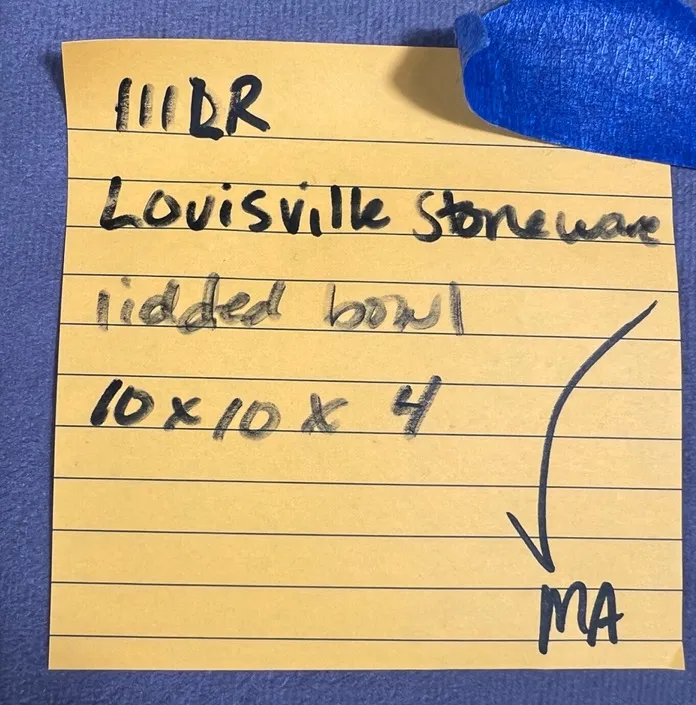 111DR
Louisville Stoneware
lidded bowl
10 x 10 x 4
MA